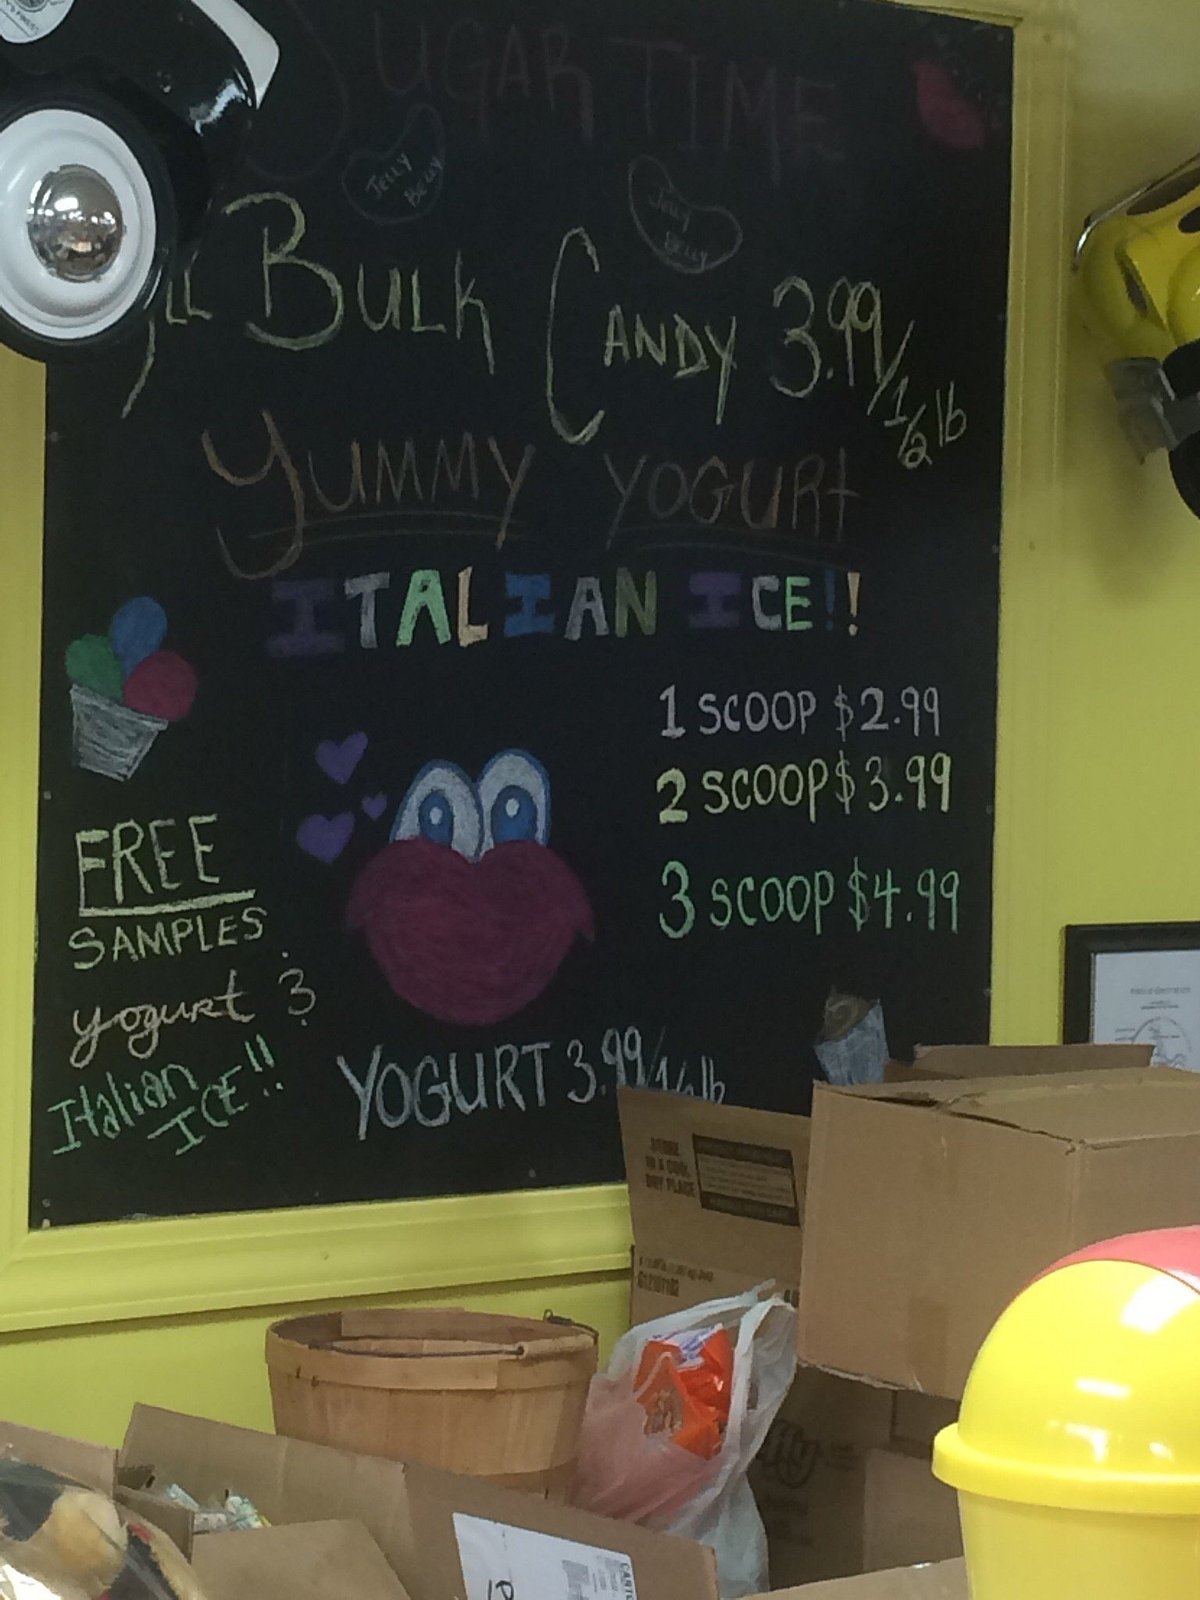 SUGAR TIME
JELLY
BELLY
Jelly
BELLY
BULK CANDY 3.99/1/2 lb
YUMMY YOGURT
ITALIAN ICE!!
1 SCOOP $2.99
2 SCOOP $3.99
3 SCOOP $4.99
FREE
SAMPLES
yogurt &
Italian
ICE!!
YOGURT 3.99/1/2 lb
STORE
IN A COOL
DRY PLACE